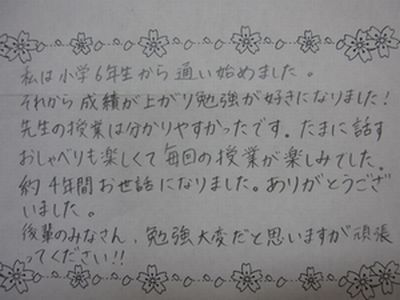 私は小学6年生から通い始めました。
それから成績が上がり勉強が好きになりました!
先生の授業は分かりやすかったです。たまに話す
おしゃべりも楽しくて毎回の授業が楽しみでした。
約4年間お世話になりました。ありがとうござ
いました。
後輩のみなさん、勉強大変だと思いますが頑張
ってください!!